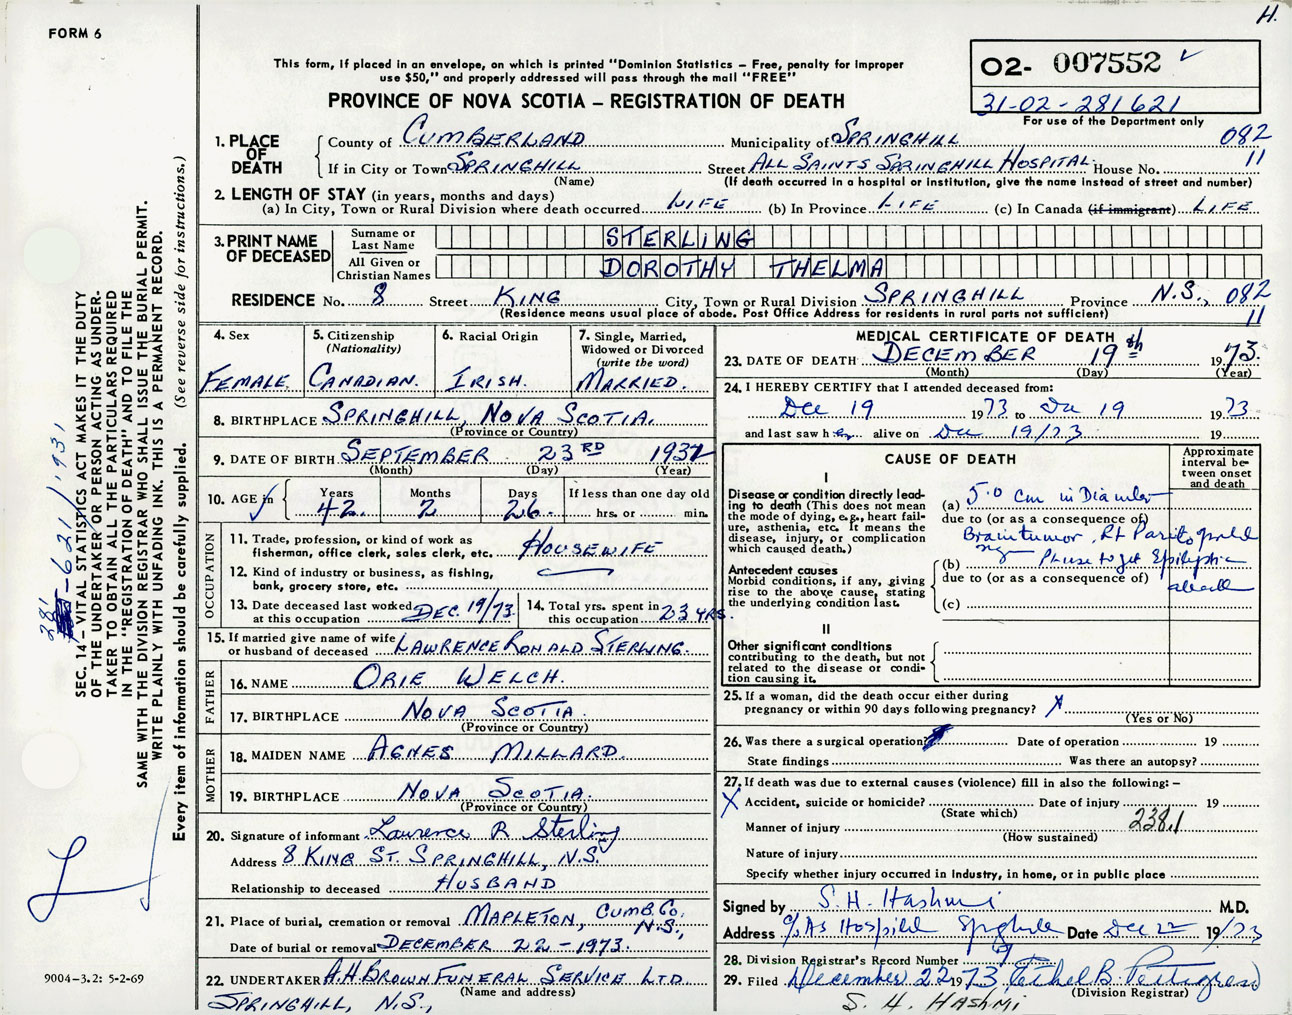 H.
FORM 6
This form, if placed in an envelope, on which is printed "Dominion Statistics – Free, penalty for improper
use $50," and properly addressed will pass through the mail "FREE"
PROVINCE OF NOVA SCOTIA – REGISTRATION OF DEATH
02- 007552
31-02-281621
For use of the Department only
1. PLACE OF DEATH
County of CUMBERLAND Municipality of SPRINGHILL 082
If in City or Town SPRINGHILL Street ALL SAINTS SPRINGHILL HOSPITAL. House No. 11
(Name) (If death occurred in a hospital or institution, give the name instead of street and number)
2. LENGTH OF STAY (in years, months and days)
(a) In City, Town or Rural Division where death occurred LIFE (b) In Province LIFE (c) In Canada (if immigrant) LIFE
3. PRINT NAME OF DECEASED
Surname or Last Name STERLING
All Given or Christian Names DOROTHY THELMA
RESIDENCE No. 8 Street KING City, Town or Rural Division SPRINGHILL Province N.S., 082
(Residence means usual place of abode. Post Office Address for residents in rural parts not sufficient) 11
4. Sex
FEMALE
5. Citizenship (Nationality)
CANADIAN.
6. Racial Origin
IRISH.
7. Single, Married, Widowed or Divorced (write the word)
MARRIED.
8. BIRTHPLACE SPRINGHILL, NOVA SCOTIA.
(Province or Country)
9. DATE OF BIRTH SEPTEMBER 23RD
(Month) (Day) (Year)
10. AGE in Years 42 Months 2 Days 26 If less than one day old hrs. or min.
OCCUPATION
11. Trade, profession, or kind of work as HOUSEWIFE
fisherman, office clerk, sales clerk, etc.
12. Kind of industry or business, as fishing,
bank, grocery store, etc.
13. Date deceased last worked at this occupation DEC. 19/73 14. Total yrs. spent in this occupation 23 YRS.
15. If married give name of wife or husband of deceased LAWRENCE RONALD STERLING.
FATHER
16. NAME ORIE WELCH.
17. BIRTHPLACE NOVA SCOTIA
(Province or Country)
MOTHER
18. MAIDEN NAME AGNES MILLARD.
19. BIRTHPLACE NOVA SCOTIA.
(Province or Country)
20. Signature of informant Lawrence R Sterling
Address 8 KING ST. SPRINGHILL, N.S.
Relationship to deceased HUSBAND
21. Place of burial, cremation or removal MAPLETON, CUMB. CO. N.S.,
Date of burial or removal DECEMBER 22-1973.
22. UNDERTAKER A.H. BROWN FUNERAL SERVICE LTD
(Name and address)
SPRINGHILL, N.S.,
MEDICAL CERTIFICATE OF DEATH
23. DATE OF DEATH DECEMBER 19th 1973.
(Month) (Day) (Year)
24. I HEREBY CERTIFY that I attended deceased from:
Dec 19 1973 to Dec 19 1973
and last saw her alive on Dec 19/73 19
CAUSE OF DEATH
Approximate interval between onset and death
I
Disease or condition directly leading to death (This does not mean the mode of dying, e.g., heart failure, asthenia, etc. It means the disease, injury, or complication which caused death.)
(a) 5.0 cm in Diameter
due to (or as a consequence of)
Brain tumor, Rt
Antecedent causes
Morbid conditions, if any, giving rise to the above cause, stating the underlying condition last.
(b)
due to (or as a consequence of)
(c)
II
Other significant conditions contributing to the death, but not related to the disease or condition causing it.
25. If a woman, did the death occur either during
pregnancy or within 90 days following pregnancy? X
(Yes or No)
26. Was there a surgical operation? Date of operation 19
State findings Was there an autopsy?
27. If death was due to external causes (violence) fill in also the following: –
X Accident, suicide or homicide? Date of injury 19
(State which)
Manner of injury 238.1
(How sustained)
Nature of injury
Specify whether injury occurred in industry, in home, or in public place
Signed by S. H. Hashmi M.D.
Address c/o AS Hospital Date Dec 22 19/73
28. Division Registrar's Record Number
29. Filed December 22 1973 Ethel B.
(Division Registrar)
S. H. HASHMI
SEC. 14 – VITAL STATISTICS ACT MAKES IT THE DUTY
OF THE UNDERTAKER OR PERSON ACTING AS UNDER-
TAKER TO OBTAIN ALL THE PARTICULARS REQUIRED
IN THE "REGISTRATION OF DEATH" AND TO FILE THE
SAME WITH THE DIVISION REGISTRAR WHO SHALL ISSUE THE BURIAL PERMIT.
WRITE PLAINLY WITH UNFADING INK. THIS IS A PERMANENT RECORD.
Every item of information should be carefully supplied. (See reverse side for instructions.)
281
-621/1931
9004-3.2: 5-2-69